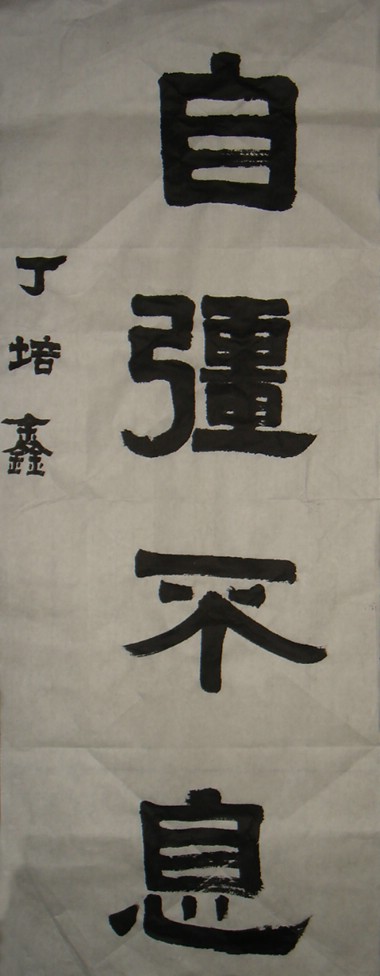 自彊不息
丁培鑫